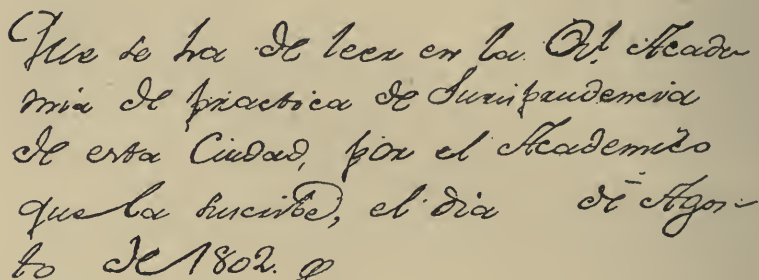 Que se ha de leer en la Rl. Acade
mia de practica de Jurisprudencia
de esta Ciudad, por el Academico
que la suscribe, el dia de Agos-
to de 1802.